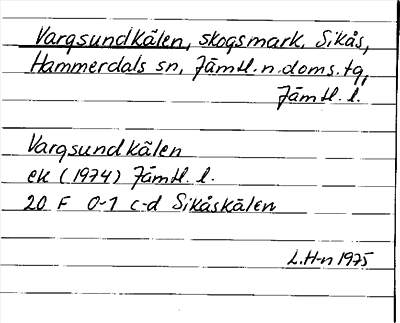 Vargsundkälen, skogsmark, Sikås,
Hammerdals sn, Jämtl. n. doms. tg,
Jämtl. l.
Vargsundkälen
ek (1974) Jämtl. l.
20 F 0-1 c-d Sikåskälen
L.H-n 1975